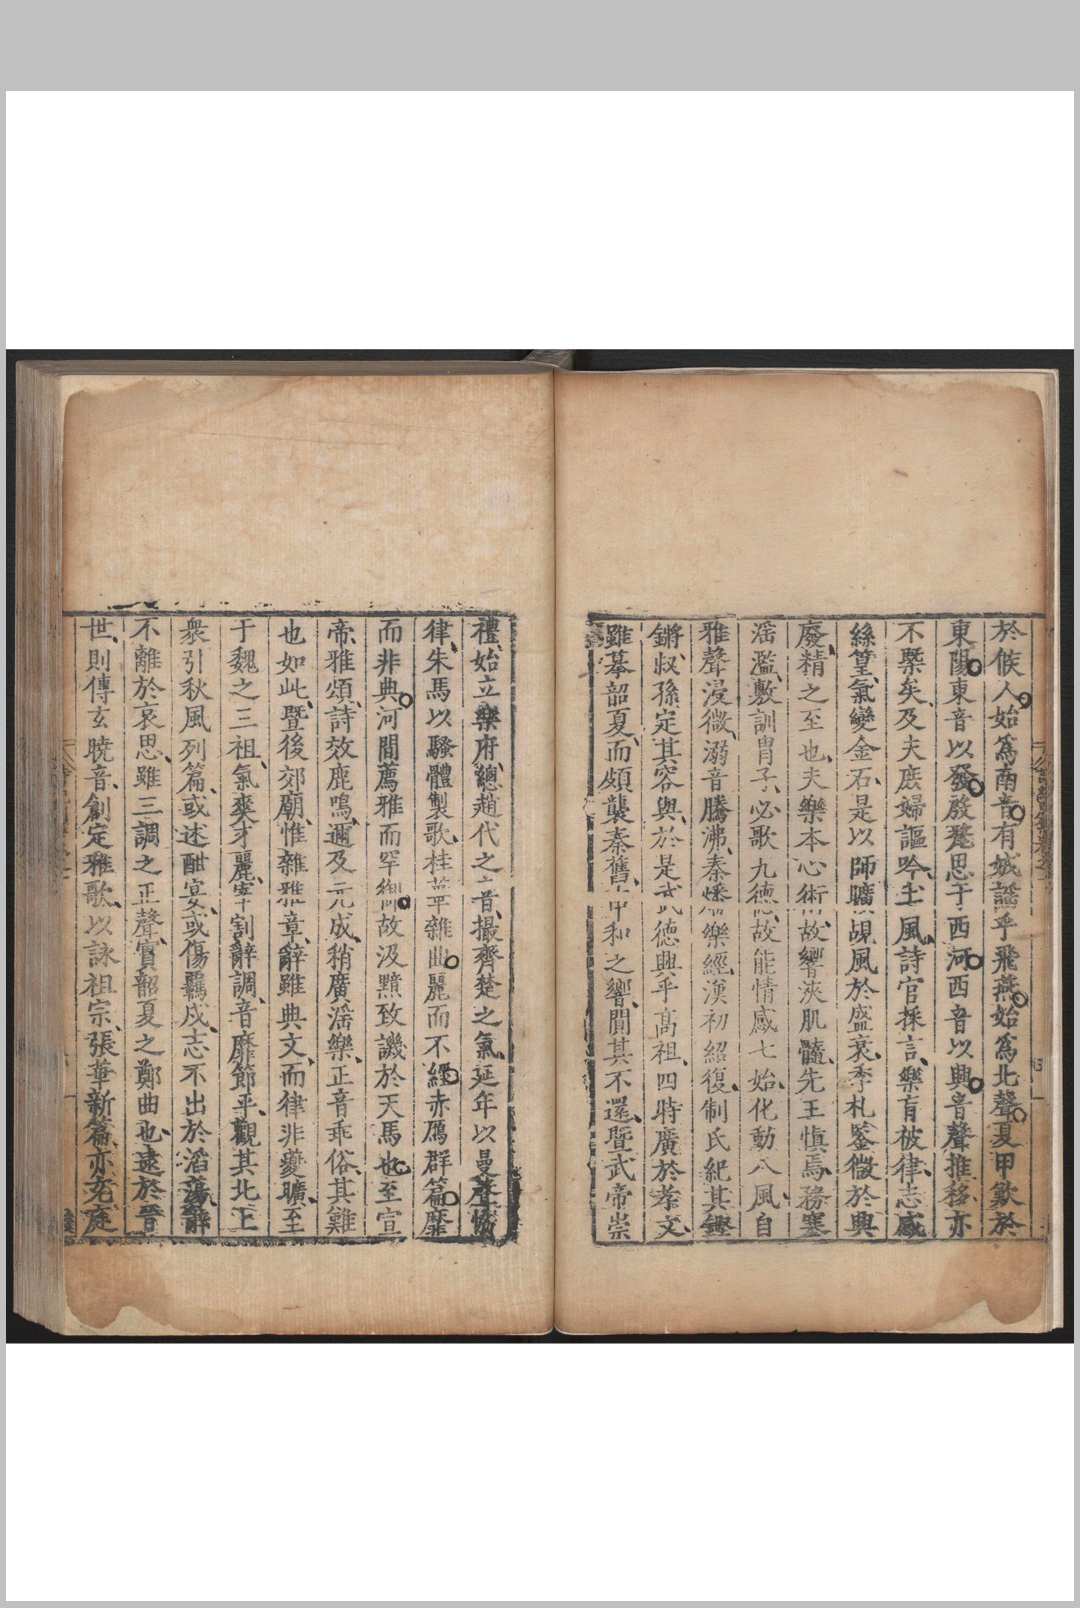 於候人始爲南音有娀謡乎飛燕始爲北聲夏甲歎於
東陽東音以發殷整思于西河西音以興音聲推移亦
不槩矣及夫庶婦謳吟土風詩官採言樂育被律志感
絲篁氣變金石是以師曠覘風於盛衰季札鑒微於興
廢精之至也夫樂本心術故響浹肌髓先王愼焉務塞
滛濫敷訓胄子必歌九德故能情感七始化動八風自
雅聲浸微溺音騰沸秦燔樂經漢初紹復制氏紀其鏗
鏘叔孫定其容與於是武德興乎高祖四時廣於孝文
雖摹韶夏而頗襲秦舊中和之響闃其不還曁武帝崇
禮始立樂府總趙代之音撮齊楚之氣延年以曼聲恊
律朱馬以騷體製歌桂華雜曲麗而不經赤鴈群篇靡
而非典河間薦雅而罕御故汲黯致譏於天馬也至宣
帝雅頌詩效鹿鳴邇及元成稍廣滛樂正音乖俗其難
也如此曁後郊廟惟雜雅章辭雖典文而律非夔曠至
于魏之三祖氣爽才麗宰割辭調音靡節平觀其北上
衆引秋風列篇或述酣宴或傷羈戍志不出於滔蕩辭
不離於哀思雖三調之正聲實韶夏之鄭曲也逮於晉
世則傅玄曉音創定雅歌以詠祖宗張華新篇亦充庭